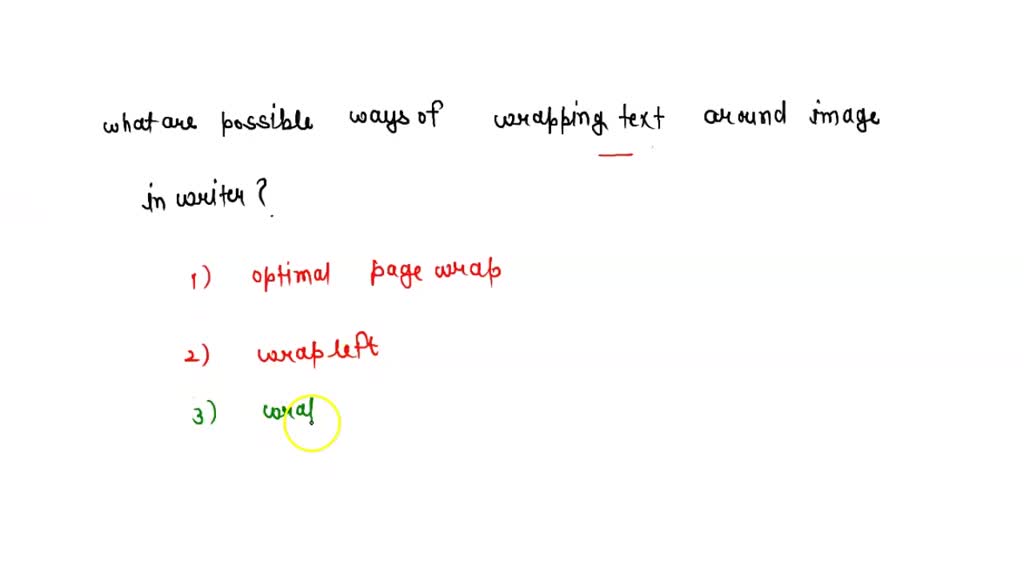 what are possible ways of wrapping text around image
in writer?
1) optimal page wrap
2) wrap left
3) wrap